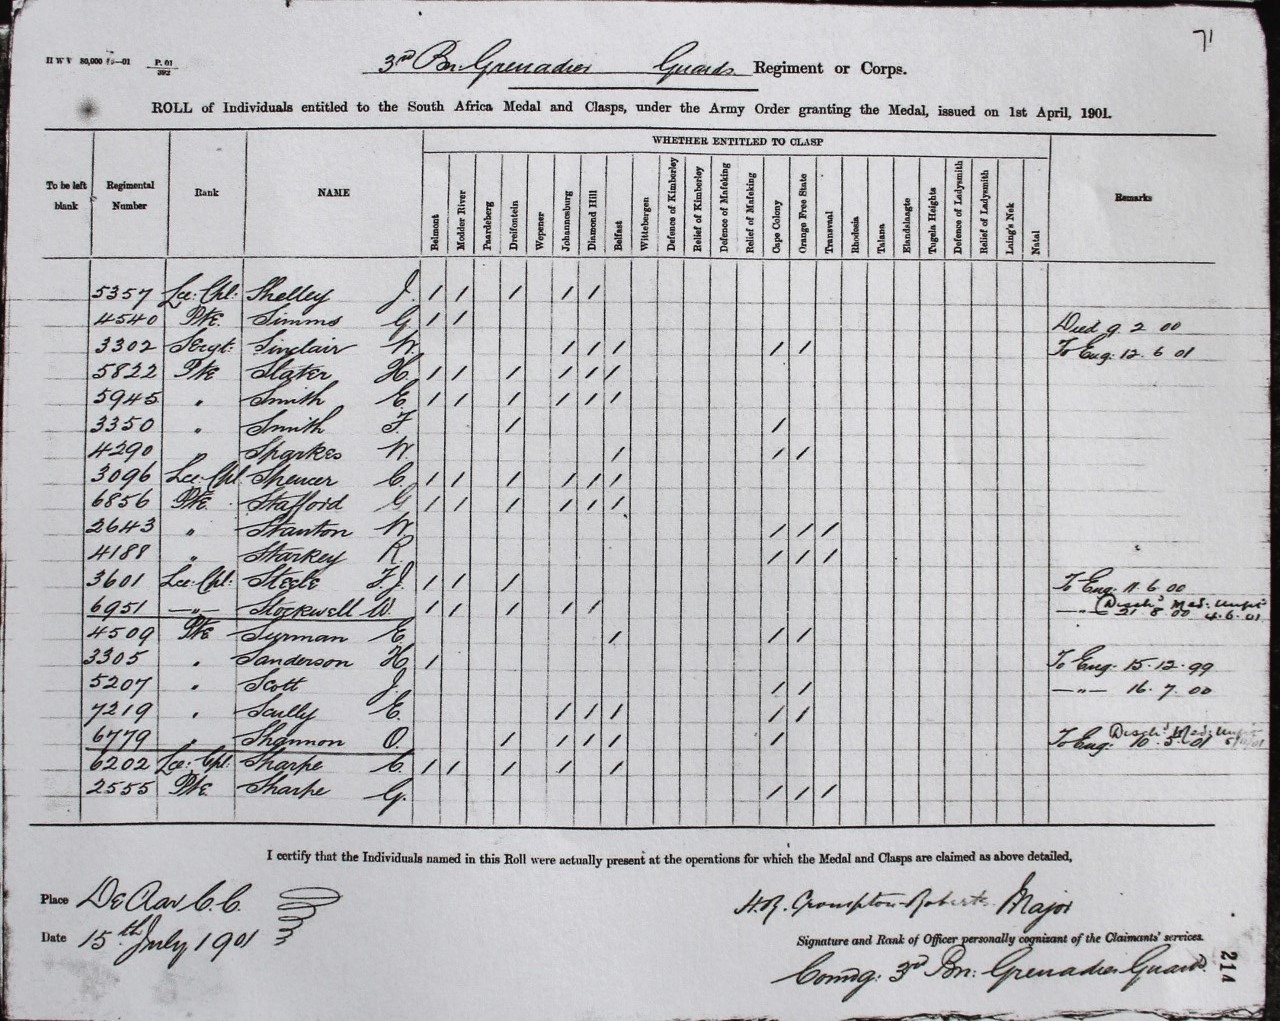 71
H W V 80,000 -01 P. 01
392
3rd Bn. Grenadier Guards Regiment or Corps.
ROLL of Individuals entitled to the South Africa Medal and Clasps, under the Army Order granting the Medal, issued on 1st April, 1901.
WHETHER ENTITLED TO CLASP
To be left blank Regimental Number Rank NAME Belmont Modder River Paardeberg Dreifontein Wepener Johannesburg Diamond Hill Belfast Wittebergen Defence of Kimberley Relief of Kimberley Defence of Mafeking Relief of Mafeking Cape Colony Orange Free State Transvaal Rhodesia Talana Elandslaagte Tugela Heights Defence of Ladysmith Relief of Ladysmith Laing's Nek Natal Remarks
5357 Lce: Cpl: Shelley J. / / / / /
4540 Pte. Simms G. / / Died 9 2 00
3302 Sergt. Sinclair W. / / / / / To Eng: 12. 6 01
5822 Pte Slater H. / / / / / /
5945 " Smith E. / / / / / /
3350 " Smith F. / /
4290 Sparkes W. / / /
3096 Lce Cpl Spencer C. / / / / / /
6856 Pte. Stafford G / / / / / /
2643 " Stanton W. / / /
4188 " Starkey R. / / /
3601 Lce: Cpl: Steele F.J. / / / To Eng. 11. 6. 00
6951 —"— Stockwell W. / / / / / —"— 21. 8. 00 Disch'd Med: Unfit 4.6.01
4509 Pte Surman E. / / /
3305 " Sanderson H. / To Eng. 15. 12. 99
5207 " Scott J. / / —"— 16. 7. 00
7219 " Scully E. / / / / /
6779 " Shannon O. / / / / / To Eng: 10. 5. 01 Disch'd Med: Unfit
6202 Lce: Cpl: Sharpe C. / / / / / /
2555 Pte. Sharpe G. / / /
I certify that the Individuals named in this Roll were actually present at the operations for which the Medal and Clasps are claimed as above detailed,
Place De Aar C.C.
H.R. Crompton-Roberts. Major
Date 15th July 1901
Signature and Rank of Officer personally cognizant of the Claimants' services.
Comdg: 3rd Bn: Grenadier Guards.
214